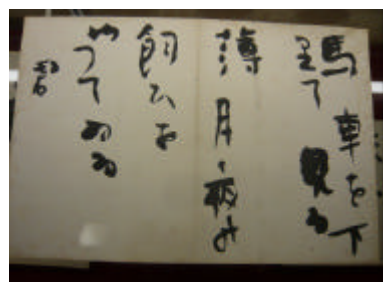 馬車を下
里て見る
薄月夜の
飼ひを
やつてゐる